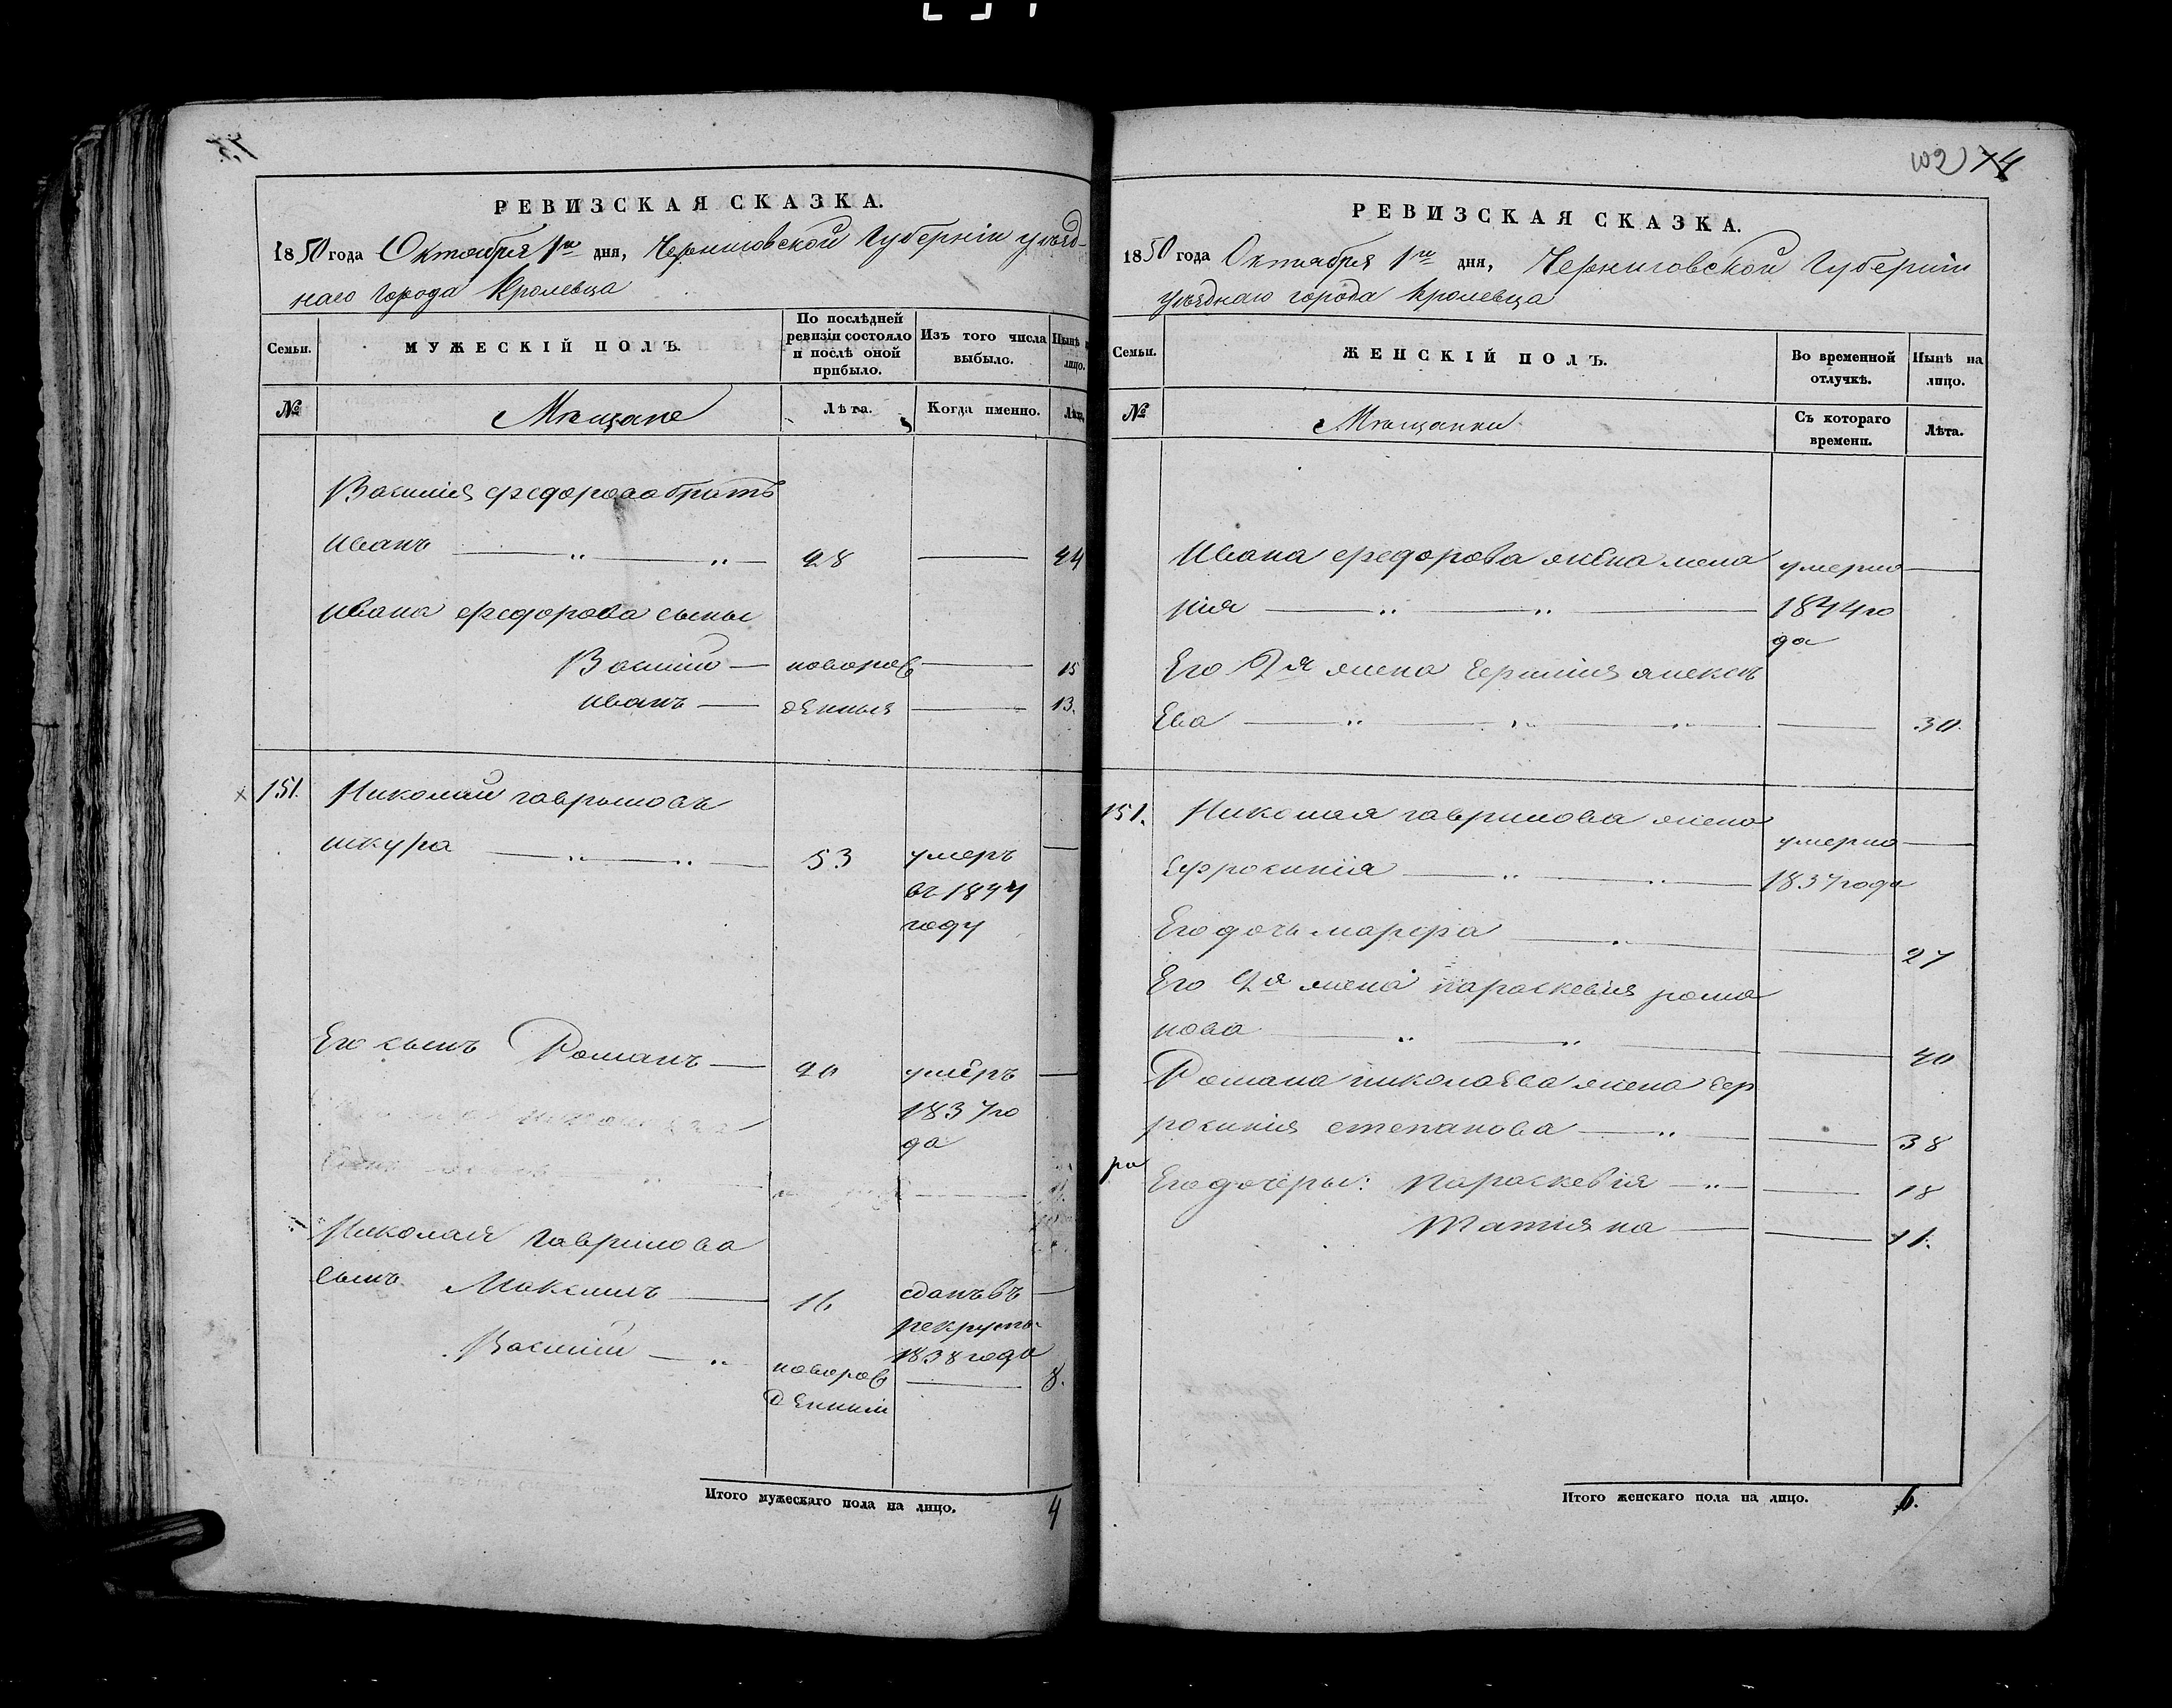 РЕВИЗСКАЯ СКАЗКА.
1850 года Октября 1го дня, Черниговской Губерніи уѣзд-
наго города Кролевца
Семьи.
МУЖЕСКІЙ ПОЛЪ.
По послѣдней ревизіи состояло и послѣ оной прибыло.
Изъ того числа выбыло.
Нынѣ на лицо.
№
Мѣщане
Лѣта.
Когда именно.
Лѣта.
Василія федорова братъ
иванъ 28 44
ивана федорова сыны
Василій новорож 15
иванъ денныя 13.
151. Николай гавриловъ
шкура 53 умеръ
въ 1844
году
Его сынъ Романъ 20 умеръ
1837 го
да
Николая гаврилова
сынъ Максимъ 16 сданъ въ
рекруты
1838 года
Василій новорож 8.
денный
Итого мужескаго пола на лицо. 4
102 74
РЕВИЗСКАЯ СКАЗКА.
1850 года Октября 1го дня, Черниговской Губерніи
уѣзднаго города Кролевца
Семьи.
ЖЕНСКІЙ ПОЛЪ.
Во временной отлучкѣ.
Нынѣ на лицо.
№
Мѣщанки
Съ котораго времени.
Лѣта.
Ивана федорова жена мела умерла
нія 1844 го
да
Его 2я жена алексѣ
ева 30.
151. Николая гаврилова жена умерла
Ефросинія 1837 года
Его дочь марфа 27
Его 2я жена параскевия рома
нова 40
Романа николаева жена еф
росинія степанова 38
Его дочеры: Параскевія 18
Татіяна 11.
Итого женскаго пола на лицо. 6.